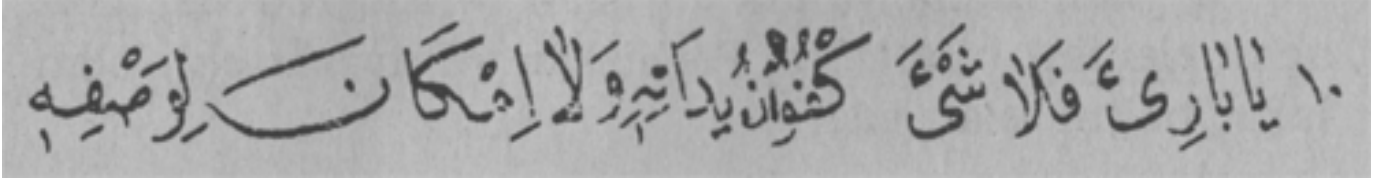 ١٠ يَا بَارِئَ فَلَا شَيْءَ كُفْوُهُ يُدَانِيهِ وَلَا إِمْكَانَ لِوَصْفِهِ